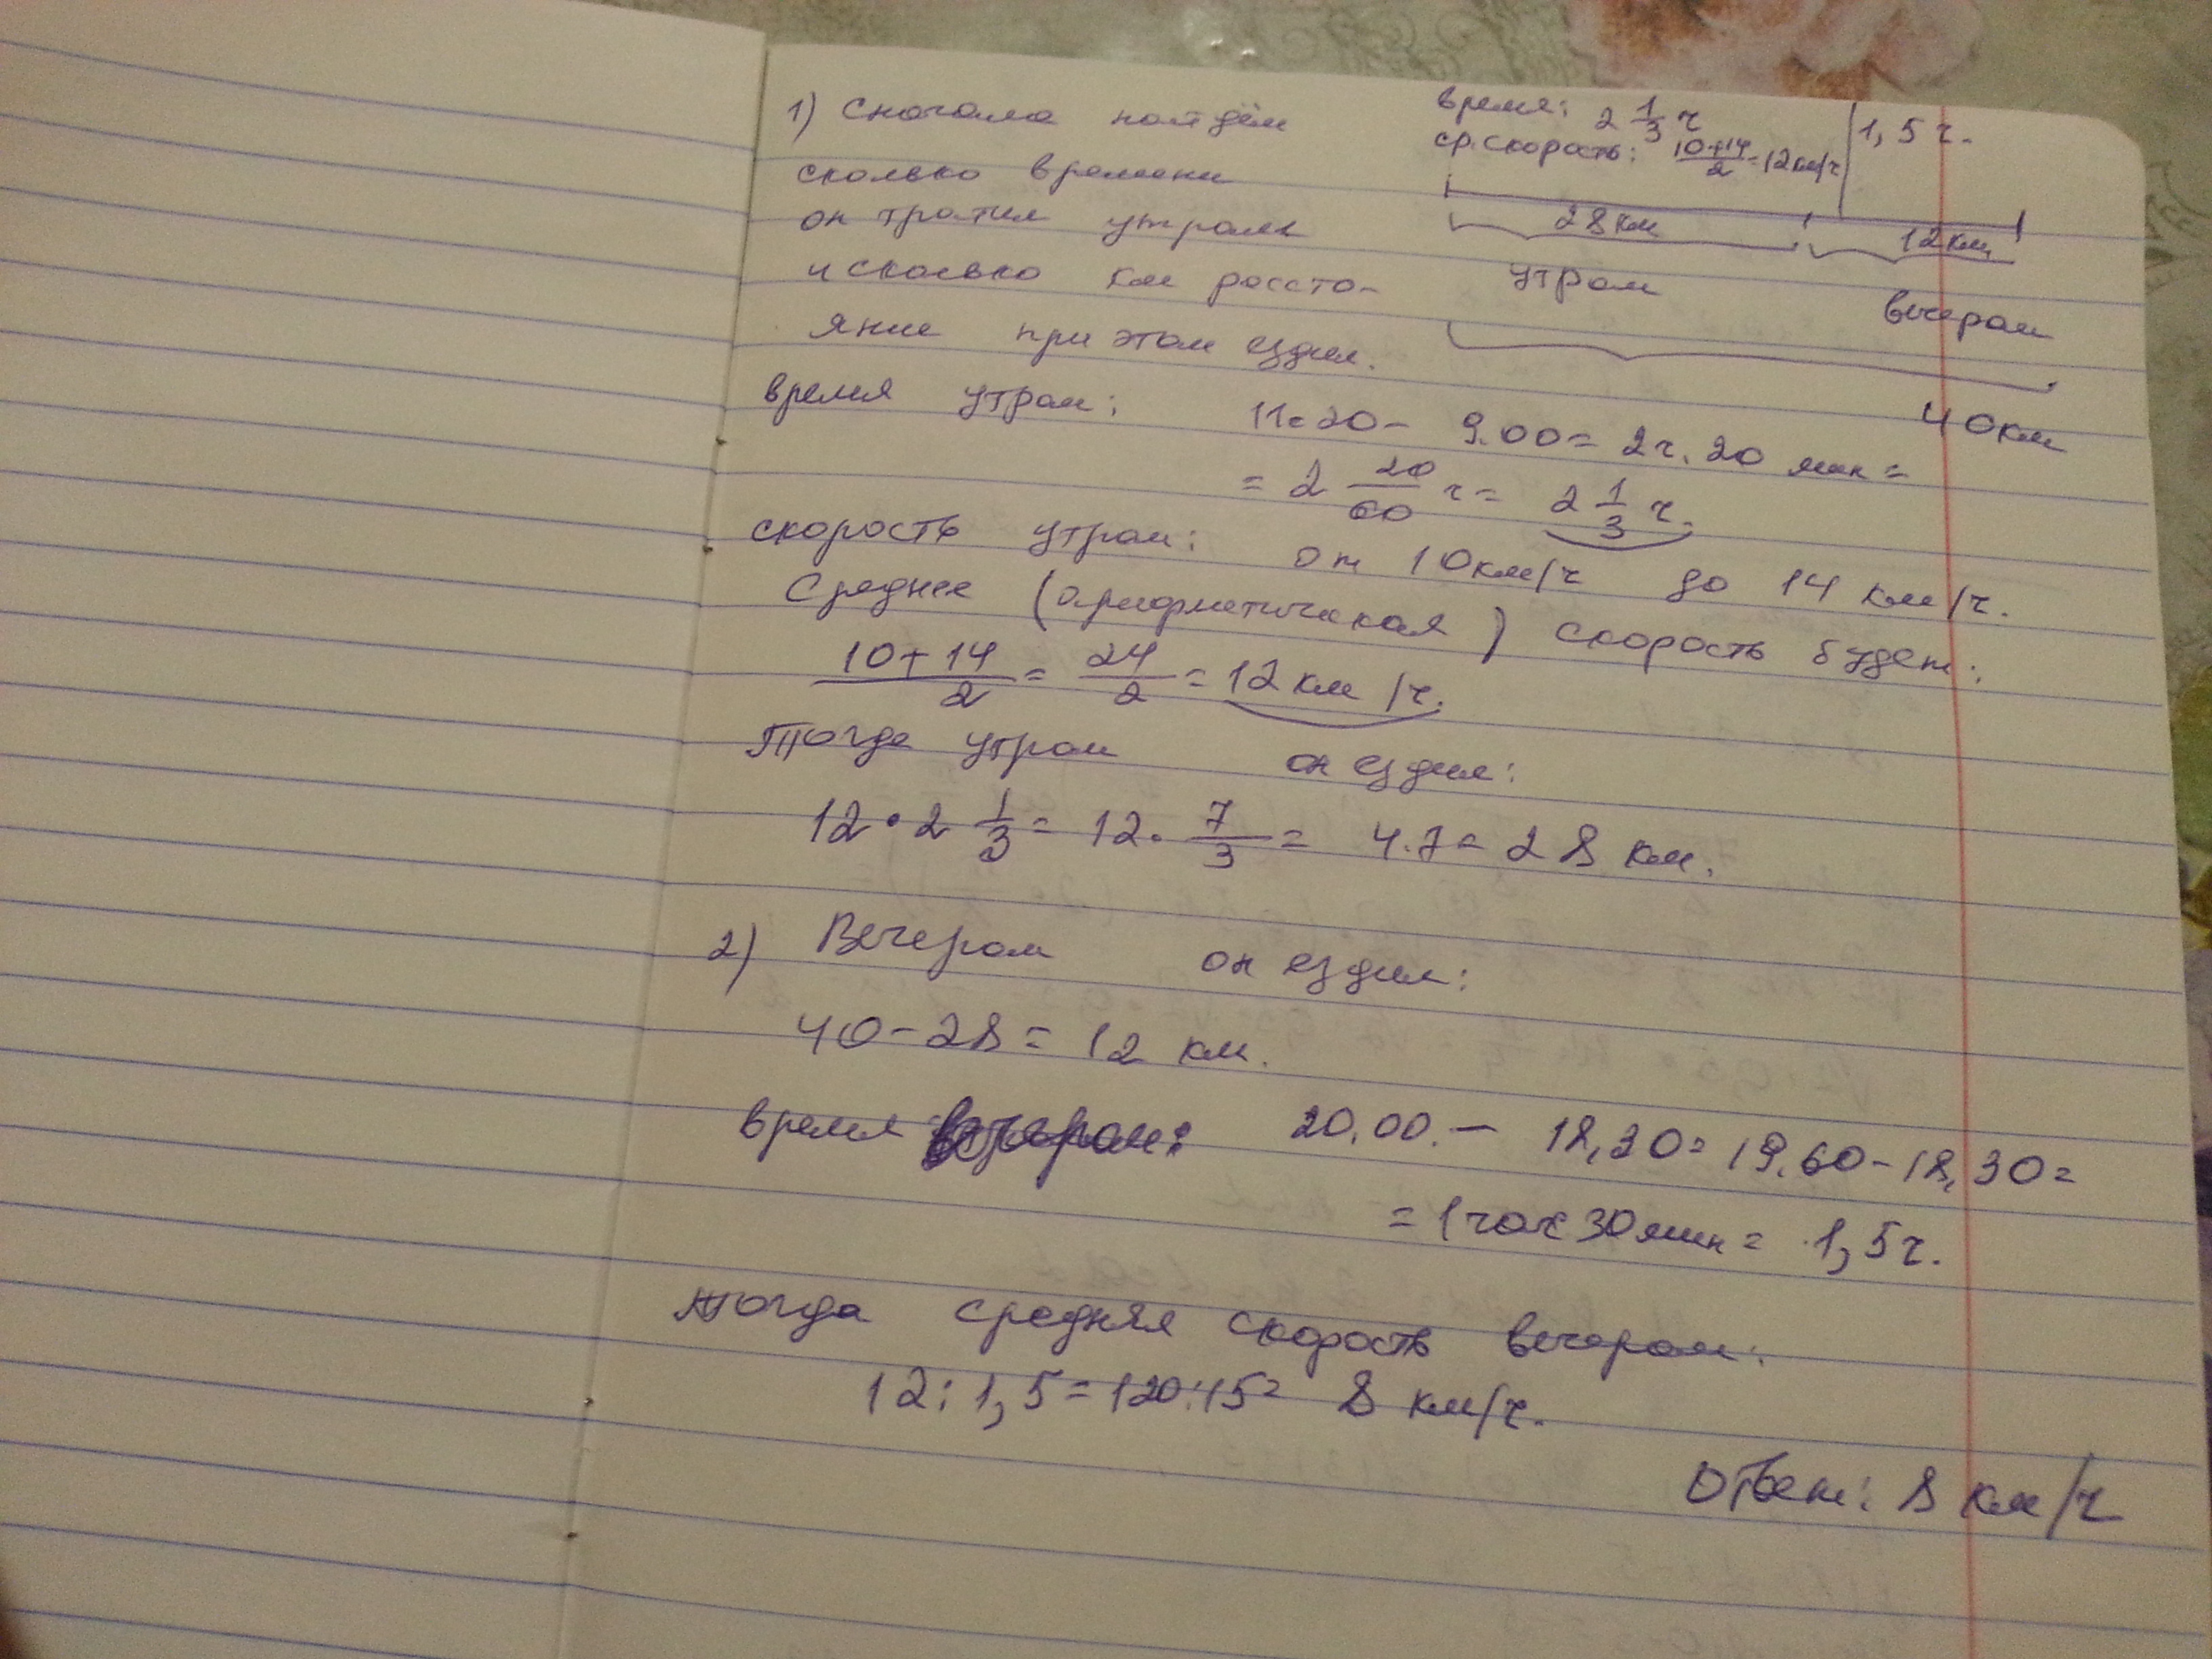 1) Сначала найдём
сколько времени
он тратил утром
и сколько км рассто-
яние при этом ездил.
время: 2 1/3 ч
1,5 ч.
ср. скорость: (10+14)/2=12км/ч
28км
12км
утром
вечером
40км
время утром: 11.20- 9.00= 2ч. 20 мин=
= 2 20/60 ч= 2 1/3 ч.
скорость утром: от 10км/ч до 14 км/ч.
Среднее (арифметическая) скорость будет:
(10+14)/2= 24/2=12км/ч.
Тогда утром он ездил:
12•2 1/3= 12• 7/3= 4.7= 28 км.
2) Вечером он ездил:
40-28= 12 км.
время вечером: 20.00.- 18,30= 19.60-18,30=
=1час30мин= 1,5ч.
Тогда средняя скорость вечером:
12:1,5=120:15= 8 км/ч.
Ответ: 8 км/ч